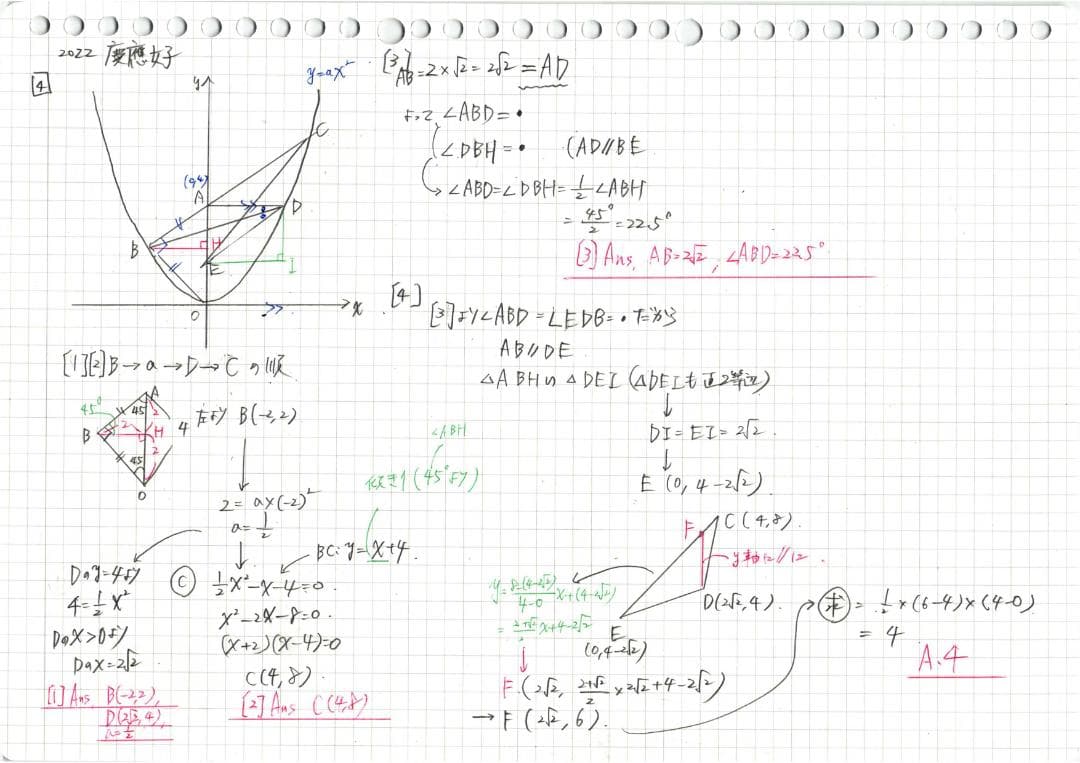 2022 慶應女子
[4]
y
y=ax²
C
(0,4)
A
D
B
H
E
I
O
x
[1][2] B→a→D→Cの順
45°
A
45
2
B
2
H
4
2
45
O
左より B(-2,2)
2=a×(-2)²
a=1/2
Dのy=4より
4=1/2x²
Dのx>0より
Dのx=2√2
[1] Ans, B(-2,2),
D(2√2,4),
a=1/2
∠ABH
傾き1(45°より)
BC: y=x+4
C
1/2x²-x-4=0.
x²-2x-8=0.
(x+2)(x-4)=0
C(4,8)
[2] Ans C(4,8)
[3]
AB=2×√2=2√2=AD
よって ∠ABD=•
∠DBH=• (AD//BE
∠ABD=∠DBH=1/2∠ABH
=45°/2=22.5°
[3] Ans, AB=2√2, ∠ABD=22.5°
[4]
[3]より∠ABD=∠EDB=•だから
AB//DE
△ABH∽△DEI (△DEIも直2等辺)
DI=EI=2√2.
E(0, 4-2√2)
F
C(4,8).
y軸に//12.
D(2√2,4).
E
(0,4-2√2)
y=8-(4-2√2)/4-0x+(4-2√2)
=2+√2/2x+4-2√2
F(2√2, 2+√2/2×2√2+4-2√2)
→F(2√2,6).
求=1/2×(6-4)×(4-0)
=4
A.4